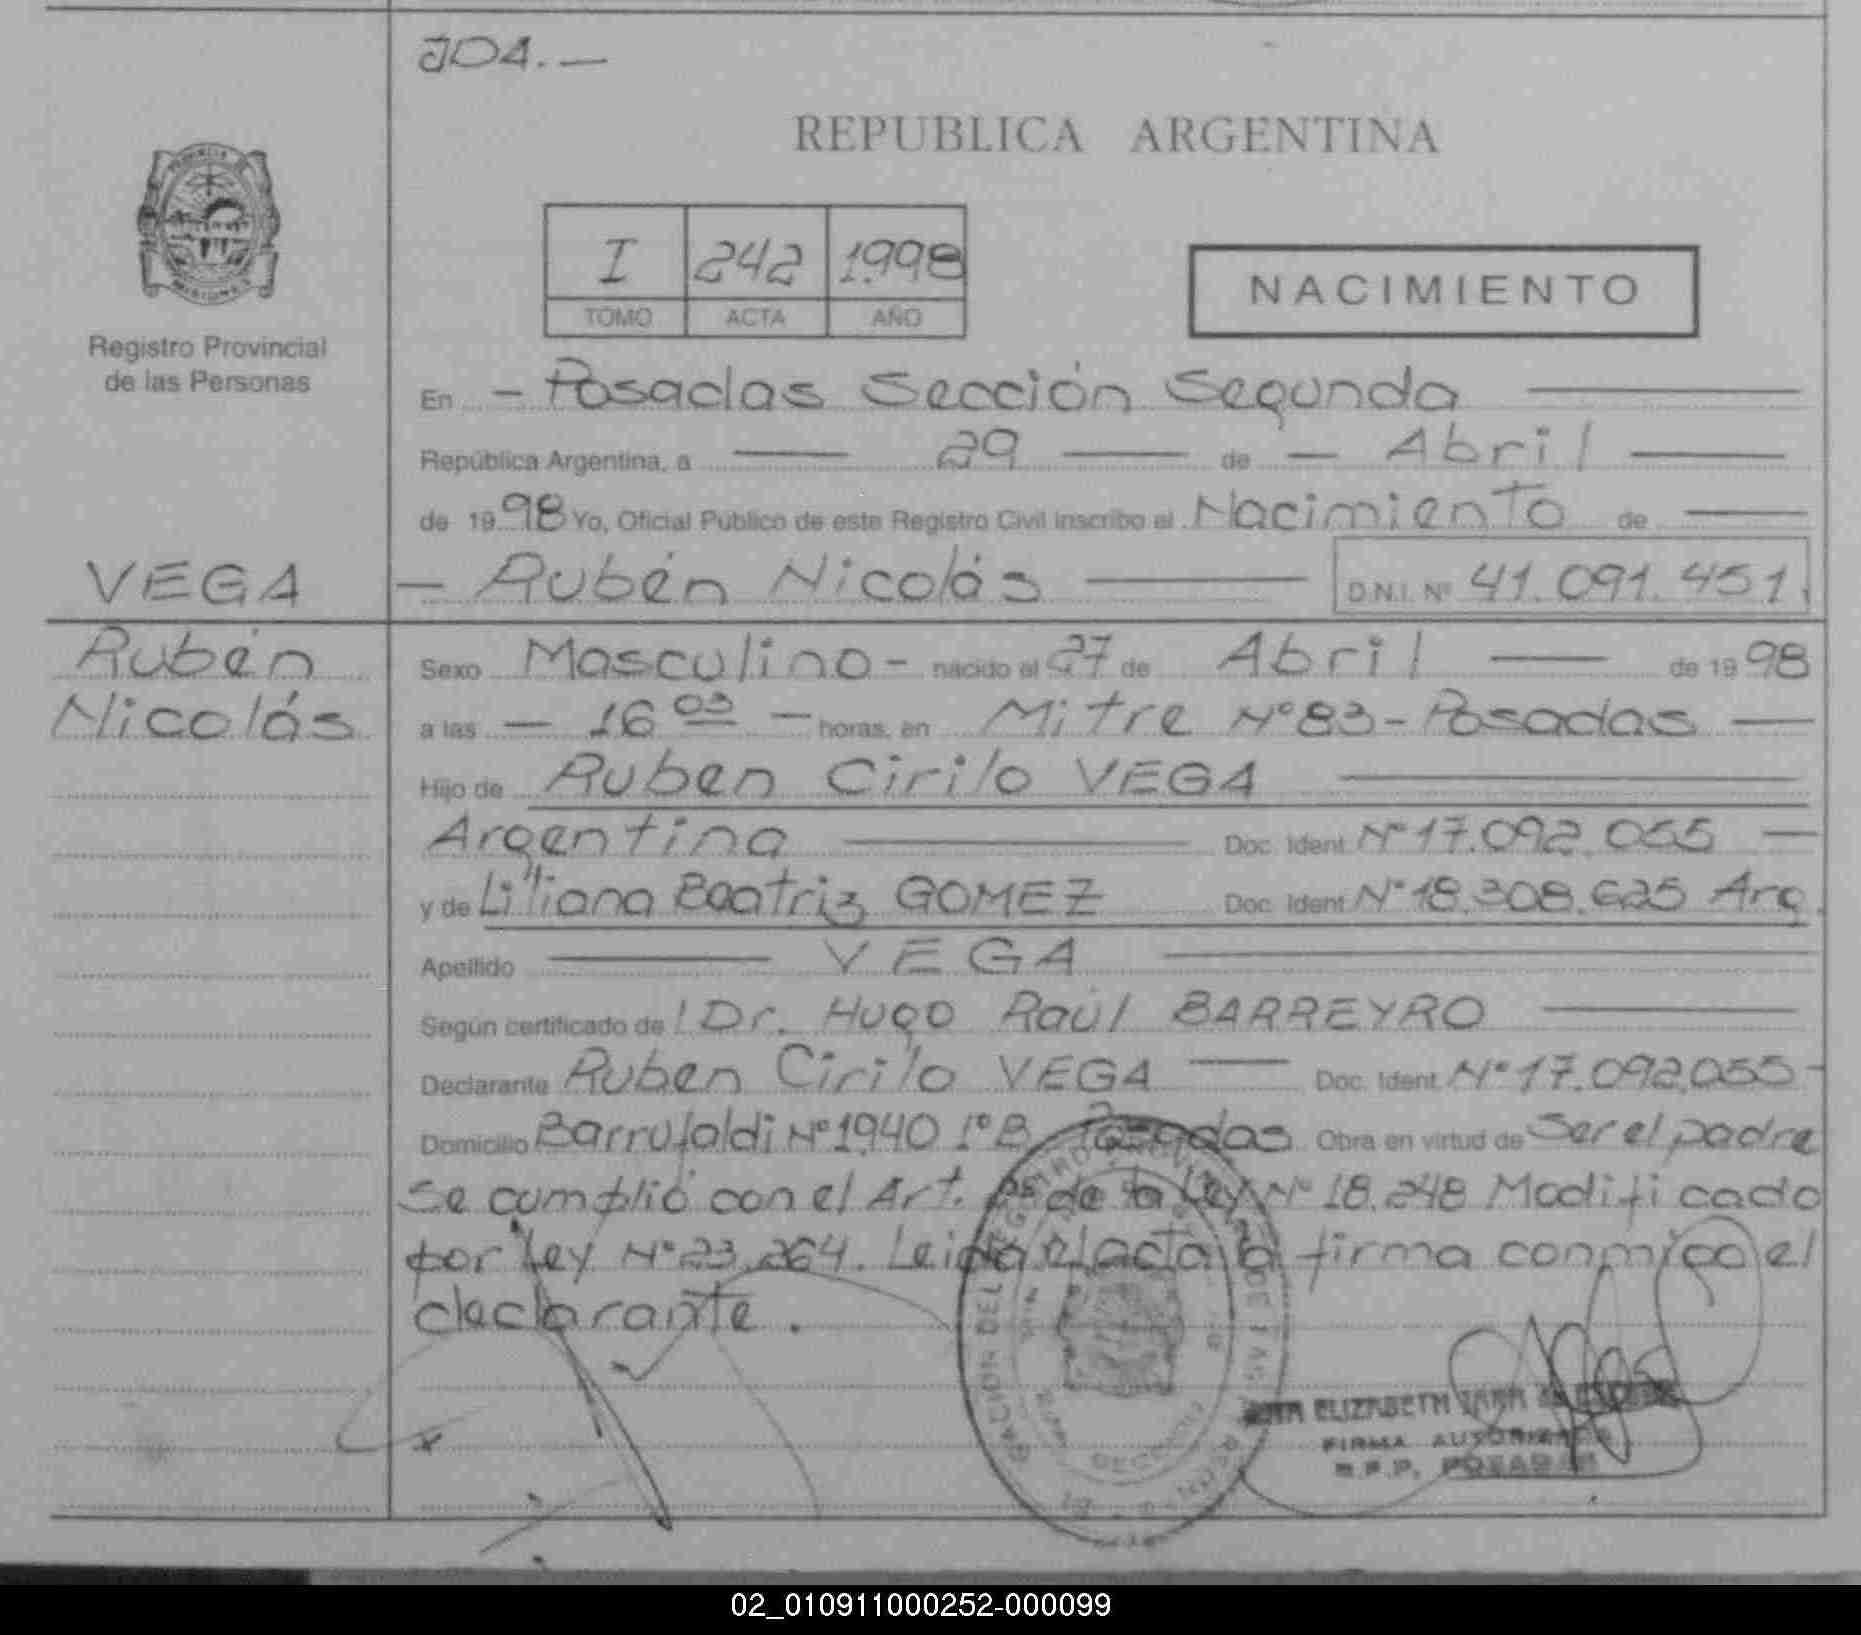 204.—
REPUBLICA ARGENTINA
I 242 1998
TOMO ACTA AÑO
NACIMIENTO
PROVINCIA
MISIONES
Registro Provincial
de las Personas
En - Posadas Sección Segunda
República Argentina, a 29 de - Abril
de 1998 Yo, Oficial Público de este Registro Civil inscribo el Nacimiento de
VEGA
- Rubén Nicolás D.N.I. Nº 41.091.451
Rubén
Nicolás
Sexo Masculino - nacido el 27 de Abril de 1998
a las - 16 03 - horas, en Mitre Nº 83 - Posadas
Hijo de Ruben Cirilo VEGA
Argentina Doc. Ident Nº 17.092.055
y de Liliana Beatriz GOMEZ Doc. Ident Nº 18.308.625 Arg.
Apellido VEGA
Según certificado de l Dr. Hugo Raúl BARREYRO
Declarante Ruben Cirilo VEGA Doc. Ident Nº 17.092.055-
Domicilio Barrufaldi Nº 1940 1º B Posadas Obra en virtud de Ser el padre
Se cumplió con el Art. de la Ley Nº 18.248 Modificado
por Ley Nº 23.264. Leida el acta la firma conmigo el
declarante.
ELIZABETH
FIRMA AUTORIZADA
R.P.P. POSADAS
02_010911000252-000099